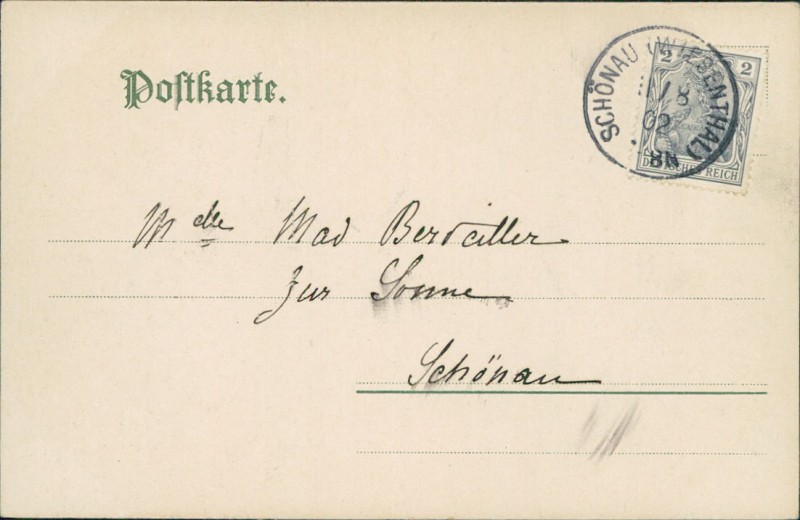 Postkarte.
SCHÖNAU (WIESENTHAL)
1/8
02
8N
2 2
DEUTSCHES REICH
Mdlle Mad
Zur Sonne
Schönau